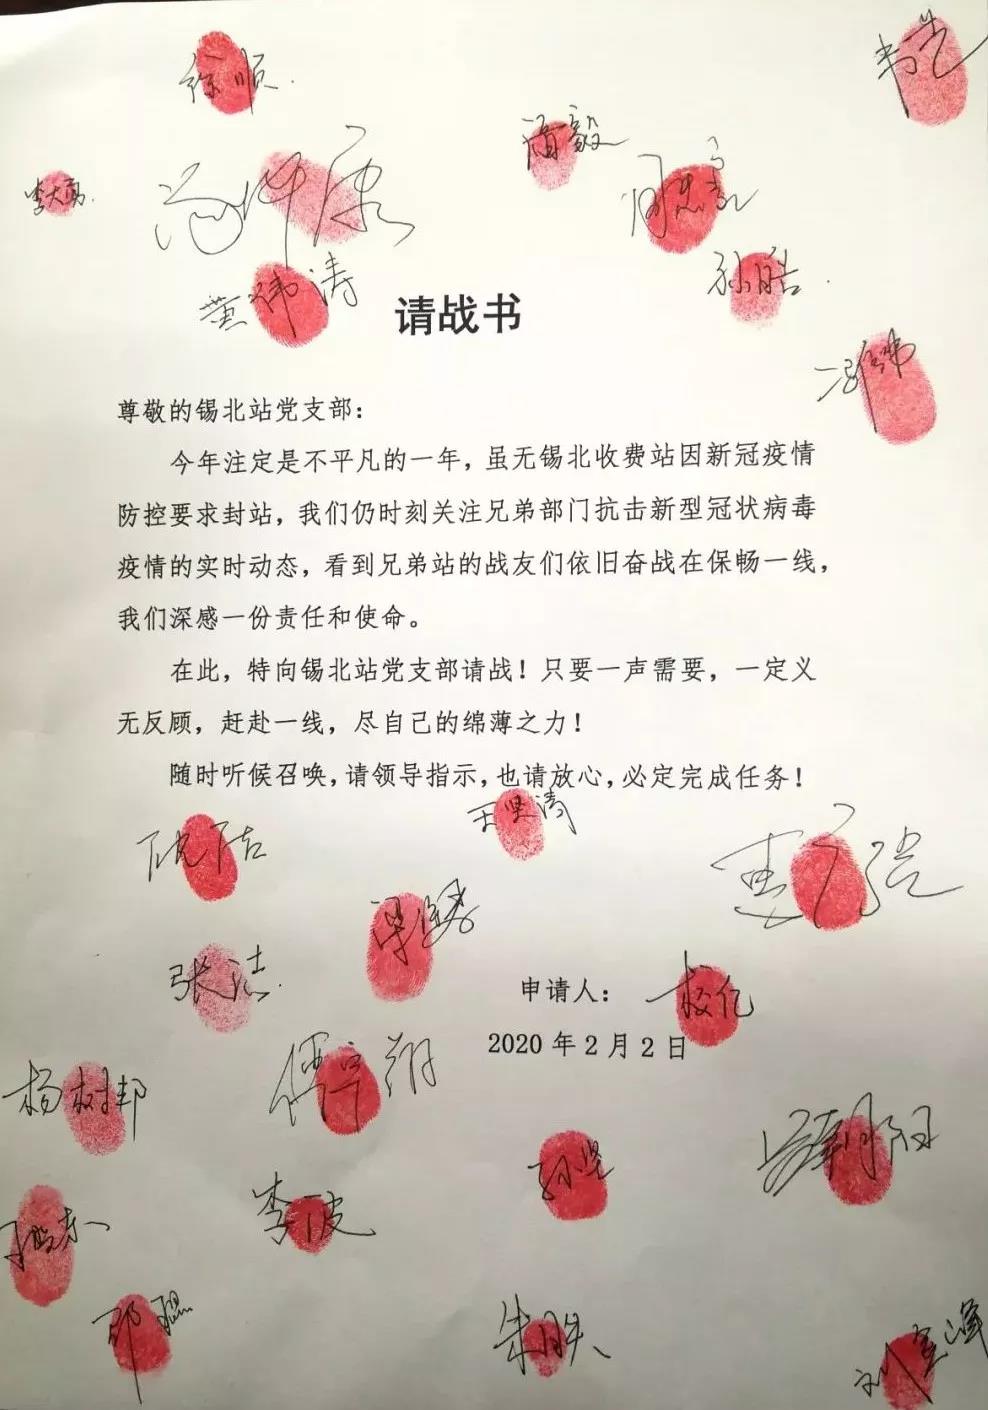 徐顺
韦芒
潘毅
李大勇
周志豪
孙皓
黄祎涛
请战书
冯纬
尊敬的锡北站党支部：
今年注定是不平凡的一年，虽无锡北收费站因新冠疫情
防控要求封站，我们仍时刻关注兄弟部门抗击新型冠状病毒
疫情的实时动态，看到兄弟站的战友们依旧奋战在保畅一线，
我们深感一份责任和使命。
在此，特向锡北站党支部请战！只要一声需要，一定义
无反顾，赶赴一线，尽自己的绵薄之力！
随时听候召唤，请领导指示，也请放心，必定完成任务！
王坚涛
张洁
申请人：
2020 年 2 月 2 日
杨树邦
傅宇翔
孙坚
李波
朱胜